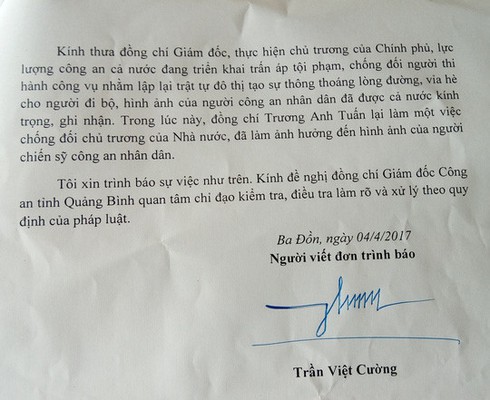 Kính thưa đồng chí Giám đốc, thực hiện chủ trương của Chính phủ, lực
lượng công an cả nước đang triển khai trấn áp tội phạm, chống đối người thi
hành công vụ nhằm lập lại trật tự đô thị tạo sự thông thoáng lòng đường, vỉa hè
cho người đi bộ, hình ảnh của người công an nhân dân đã được cả nước kính
trọng, ghi nhận. Trong lúc này, đồng chí Trương Anh Tuấn lại làm một việc
chống đối chủ trương của Nhà nước, đã làm ảnh hưởng đến hình ảnh của người
chiến sỹ công an nhân dân.
Tôi xin trình báo sự việc như trên. Kính đề nghị đồng chí Giám đốc Công
an tỉnh Quảng Bình quan tâm chỉ đạo kiểm tra, điều tra làm rõ và xử lý theo quy
định của pháp luật.
Ba Đồn, ngày 04/4/2017
Người viết đơn trình báo
Trần Việt Cường